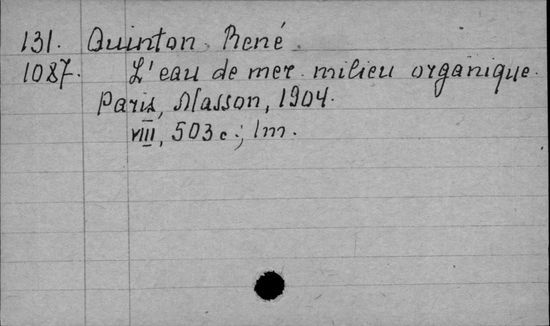 131. Quinton René.
1087. L'eau de mer milieu organique.
Paris, Masson, 1904.
VIII, 503 c.; 1m.